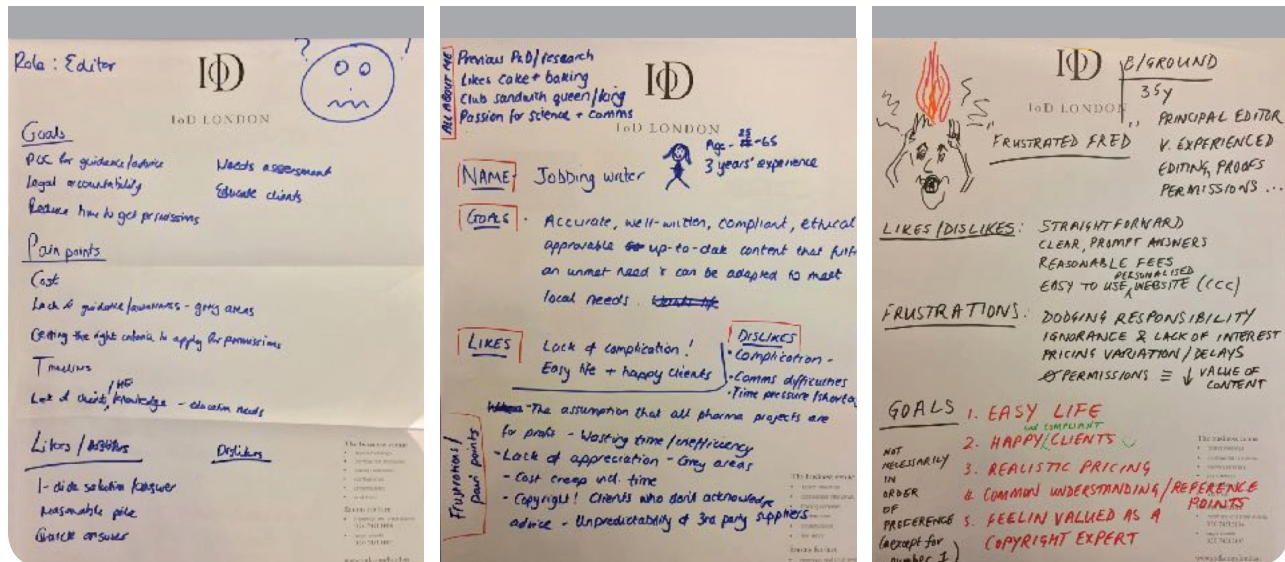 Role: Editor
? !
IOD
IoD LONDON
Goals
POC for guidance/advice
Needs assessment
Legal accountability
Educate clients
Reduce time to get permissions
Pain points
Cost
Lack of guidance/awareness - grey areas
Getting the right criteria to apply for permissions
Timelines
Lack of clients knowledge - education needs
Likes / dislikes
Dislikes
1-click solution/answer
reasonable price
Quick answer
The business venue
ALL ABOUT ME
Previous PhD/research
Likes cake + baking
Club sandwich queen/king
Passion for science + comms
IOD
IoD LONDON
Age - 25-65
3 years' experience
NAME
Jobbing writer
GOALS
- Accurate, well-written, compliant, ethical
approvable up-to-date content that fulfi
an unmet need & can be adapted to meet
local needs.
LIKES
Lack of complication!
Easy life + happy clients
DISLIKES
• Complication -
• Comms difficulties
• Time pressure/shortag
Frustrations/
pain points
- The assumption that all pharma projects are
for profit - Wasting time/inefficiency
- Lack of appreciation - Grey areas
- Cost creep incl. time
- Copyright! Clients who don't acknowledge
advice - Unpredictability of 3rd party suppliers
The business venue
IOD
IoD LONDON
B/GROUND
35y
PRINCIPAL EDITOR
"FRUSTRATED FRED
V. EXPERIENCED
EDITING, PROOFS
PERMISSIONS...
LIKES/DISLIKES: STRAIGHTFORWARD
CLEAR, PROMPT ANSWERS
REASONABLE FEES
PERSONALISED
EASY TO USE WEBSITE (CCC)
FRUSTRATIONS: DODGING RESPONSIBILITY
IGNORANCE & LACK OF INTEREST
PRICING VARIATION/DELAYS
PERMISSIONS ≡ ↓ VALUE OF
CONTENT
GOALS
NOT
NECESSARILY
IN
ORDER
OF
PREFERENCE
(except for
number 1)
1. EASY LIFE
COMPLIANT
2. HAPPY CLIENTS
3. REALISTIC PRICING
4. COMMON UNDERSTANDING/REFERENCE
POINTS
5. FEELIN VALUED AS A
COPYRIGHT EXPERT
The business venue